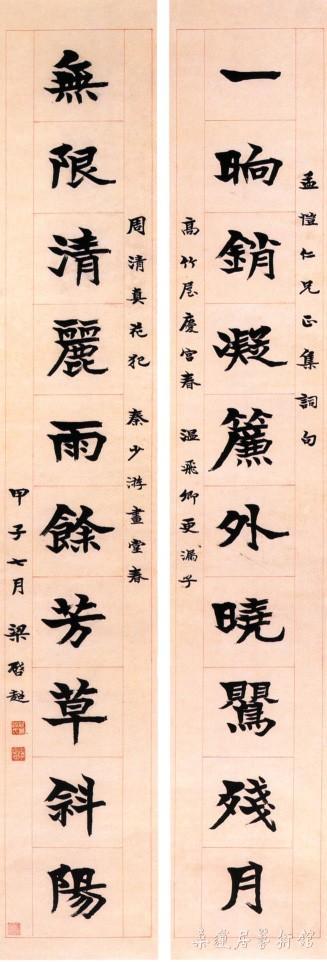 孟愷仁兄正集詞句
一晌銷凝簾外曉鸎殘月
高竹屋慶宮春 溫飛卿更漏子
周清真花犯 秦少游畫堂春
無限清麗雨餘芳草斜陽
甲子七月 梁啓超
桑蓮居藝術館